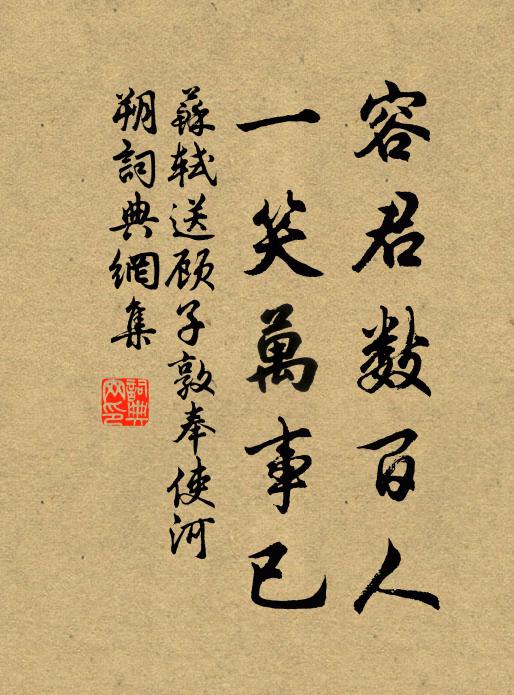 容君数百人
一笑萬事已
蘇軾送顾子敦奉使河
朔詞典網集
詞典
网印